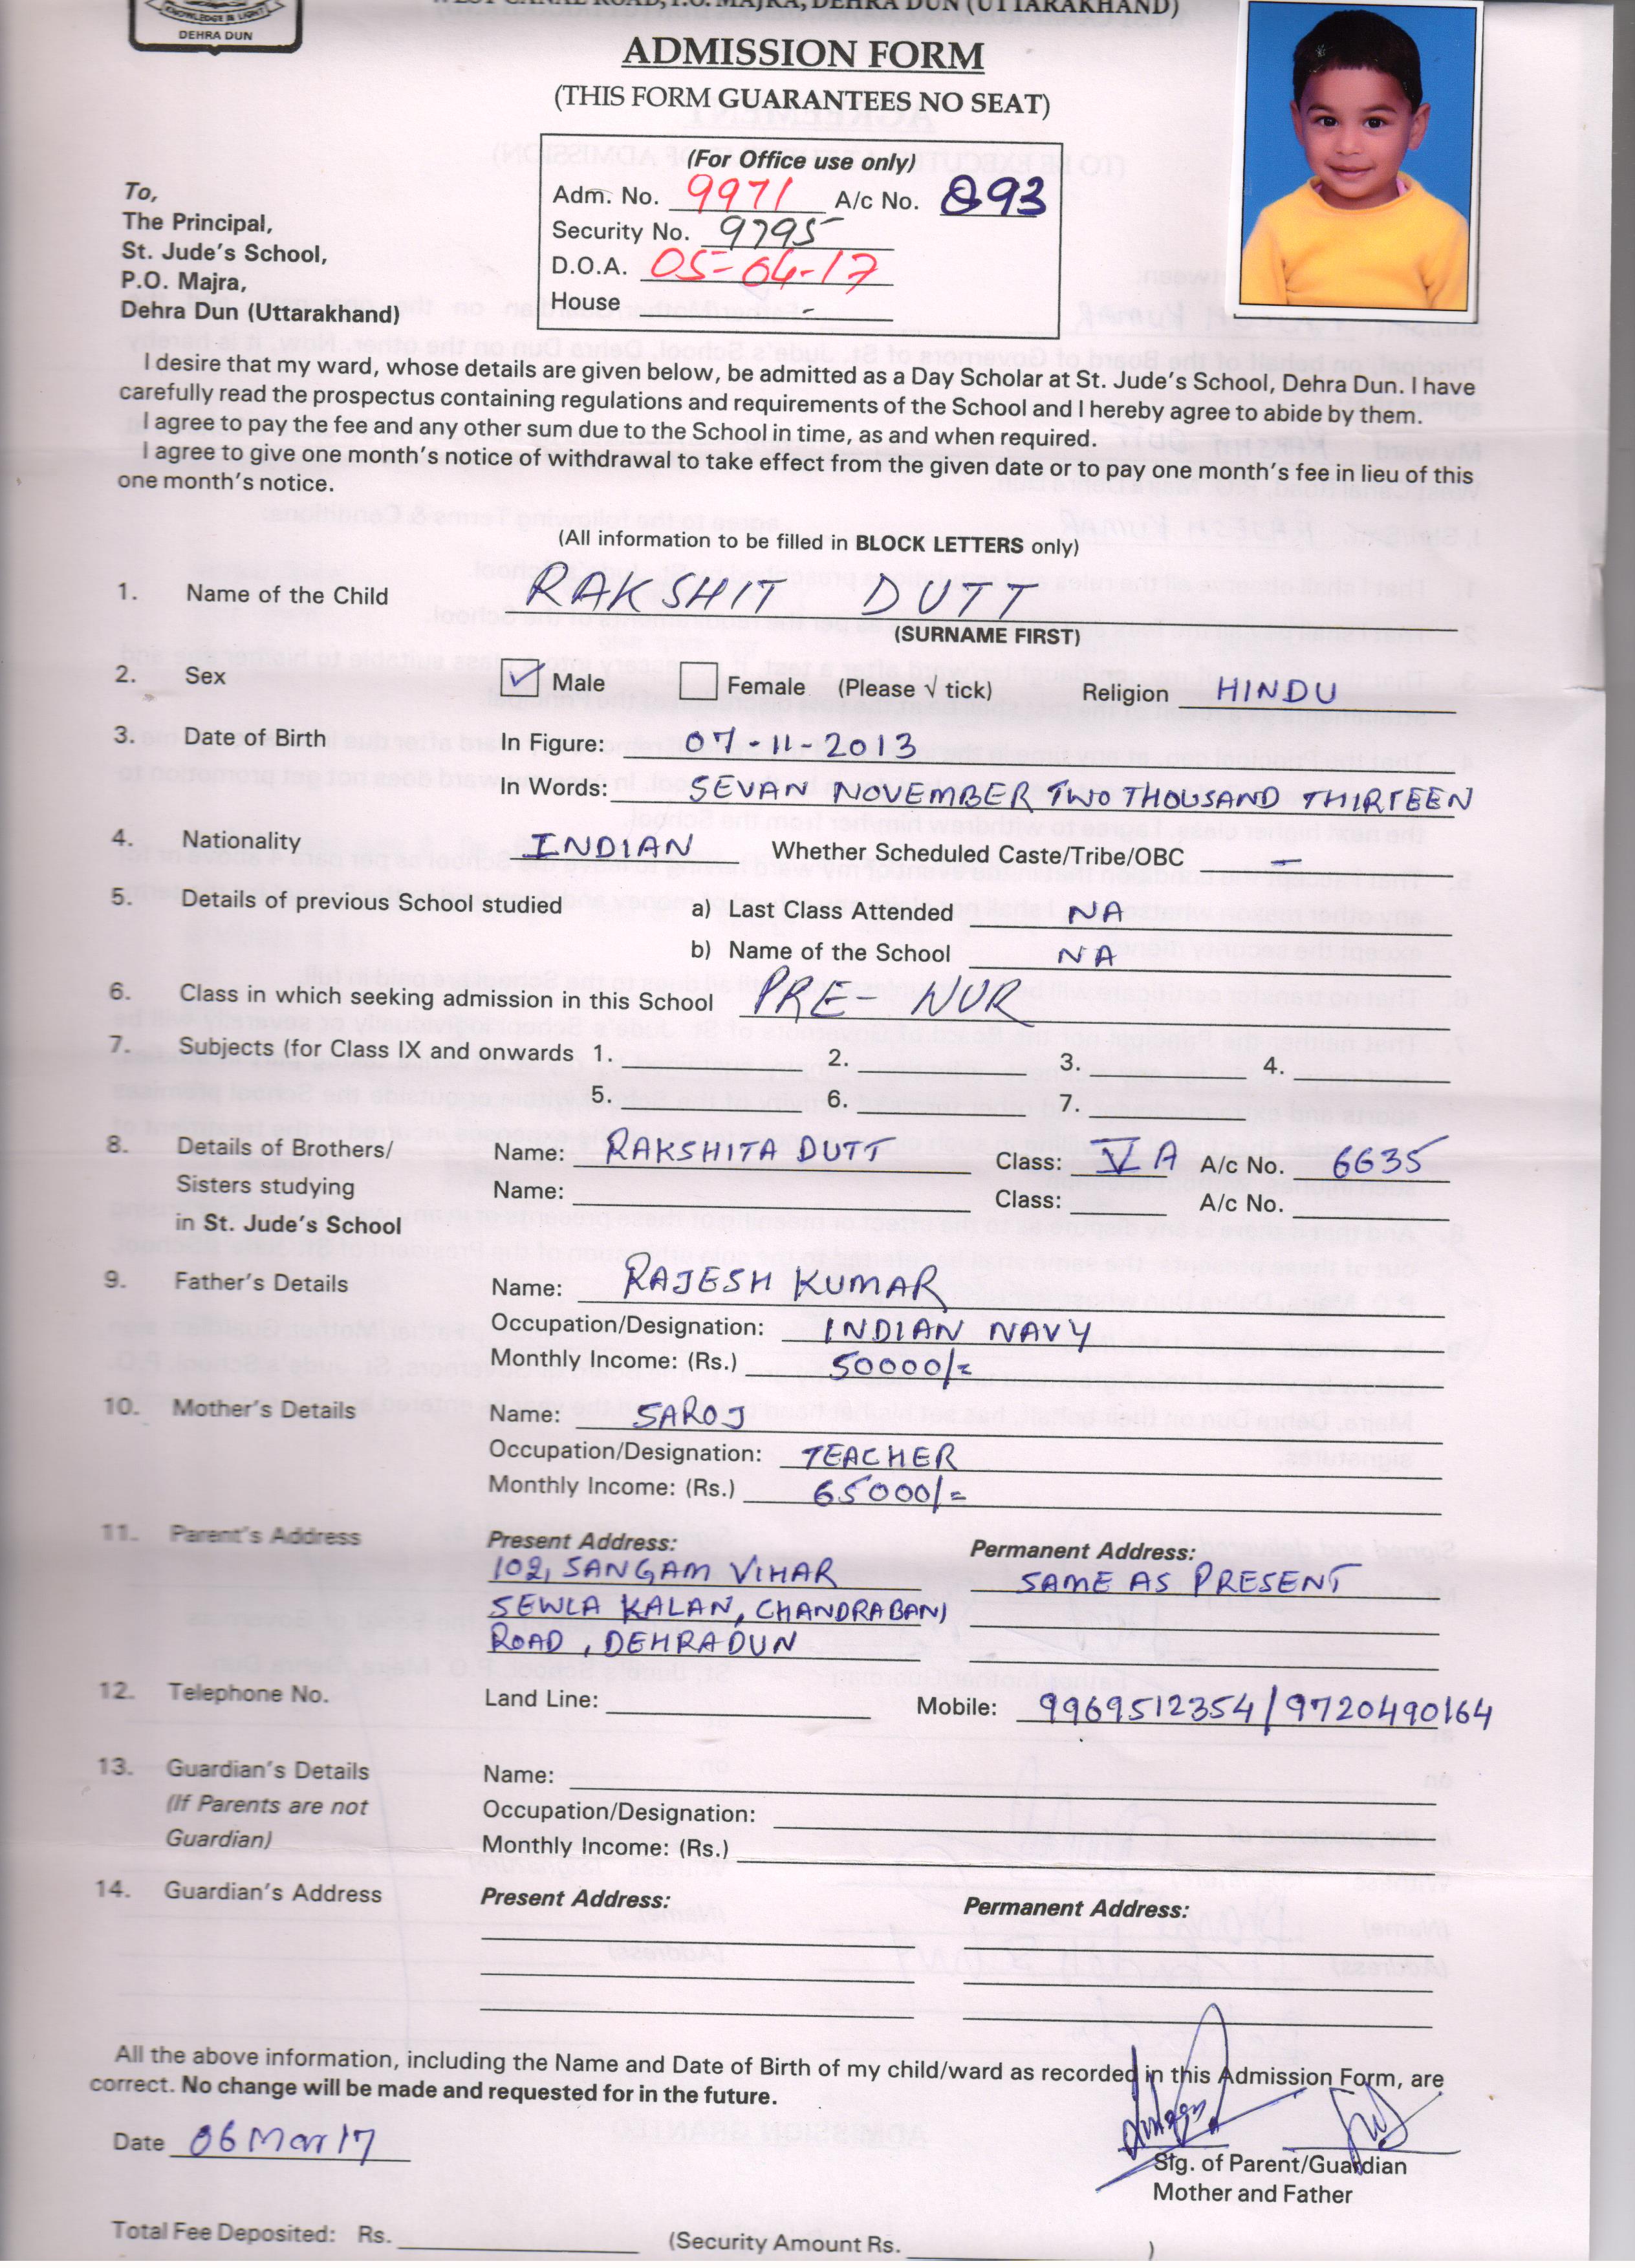 KNOWLEDGE IS LIGHT
DEHRA DUN
WEST CANAL ROAD, P.O. MAJRA, DEHRA DUN (UTTARAKHAND)
ADMISSION FORM
(THIS FORM GUARANTEES NO SEAT)
(For Office use only)
Adm. No. 9971 A/c No. 893
Security No. 9795
D.O.A. 05-04-17
House -
To,
The Principal,
St. Jude's School,
P.O. Majra,
Dehra Dun (Uttarakhand)
I desire that my ward, whose details are given below, be admitted as a Day Scholar at St. Jude's School, Dehra Dun. I have
carefully read the prospectus containing regulations and requirements of the School and I hereby agree to abide by them.
I agree to pay the fee and any other sum due to the School in time, as and when required.
I agree to give one month's notice of withdrawal to take effect from the given date or to pay one month's fee in lieu of this
one month's notice.
(All information to be filled in BLOCK LETTERS only)
1. Name of the Child RAKSHIT DUTT
(SURNAME FIRST)
2. Sex ✓ Male Female (Please √ tick) Religion HINDU
3. Date of Birth In Figure: 07-11-2013
In Words: SEVAN NOVEMBER TWO THOUSAND THIRTEEN
4. Nationality INDIAN Whether Scheduled Caste/Tribe/OBC –
5. Details of previous School studied a) Last Class Attended NA
b) Name of the School NA
6. Class in which seeking admission in this School PRE- NUR
7. Subjects (for Class IX and onwards 1. 2. 3. 4.
5. 6. 7.
8. Details of Brothers/ Name: RAKSHITA DUTT Class: V A A/c No. 6635
Sisters studying Name: Class: A/c No.
in St. Jude's School
9. Father's Details Name: RAJESH KUMAR
Occupation/Designation: INDIAN NAVY
Monthly Income: (Rs.) 50000/=
10. Mother's Details Name: SAROJ
Occupation/Designation: TEACHER
Monthly Income: (Rs.) 65000/=
11. Parent's Address Present Address: Permanent Address:
102, SANGAM VIHAR SAME AS PRESENT
SEWLA KALAN, CHANDRABANI
ROAD, DEHRADUN
12. Telephone No. Land Line: Mobile: 9969512354/9720490164
13. Guardian's Details Name:
(If Parents are not Occupation/Designation:
Guardian) Monthly Income: (Rs.)
14. Guardian's Address Present Address: Permanent Address:
All the above information, including the Name and Date of Birth of my child/ward as recorded in this Admission Form, are
correct. No change will be made and requested for in the future.
Date 06 Mar 17
Sig. of Parent/Guardian
Mother and Father
Total Fee Deposited: Rs. (Security Amount Rs. )